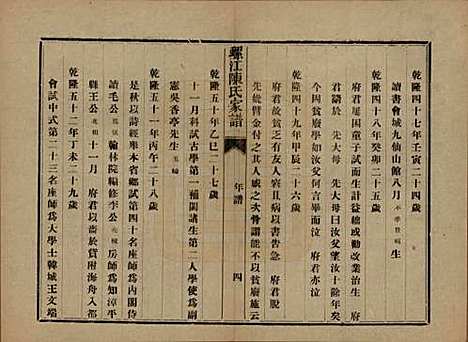 乾隆四十七年壬寅二十四歲
讀書會城九仙山館八月
生
乾隆四十八年癸卯二十五歲
府君屢困童子試而生計益絀或勸改業治生 府
君請於 先大母 先大母曰汝父望汝十年於
今因貧廢學如汝父何言畢而泣 府君亦泣
乾隆四十九年甲辰二十六歲
府君故貧乏有友人窮且病以書告急 府君即
先脫贈金付之其人感之次骨謂能不以貧廢施云
螺江陳氏家譜
年譜
四
乾隆五十年乙巳二十七歲
十一月科試古學第一補閩諸生第二人學使為副
憲吳香亭先生玉綸
乾隆五十一年丙午二十八歲
是秋以詩經舉本省鄉試第四十名座師為內閣侍
讀毛公 翰林院編修李公 房師為知漳平
縣王公兆相 十一月 府君以嗇於資附海舟入都
乾隆五十二年丁未二十九歲
會試中式第二十三名座師為大學士韓城王文端